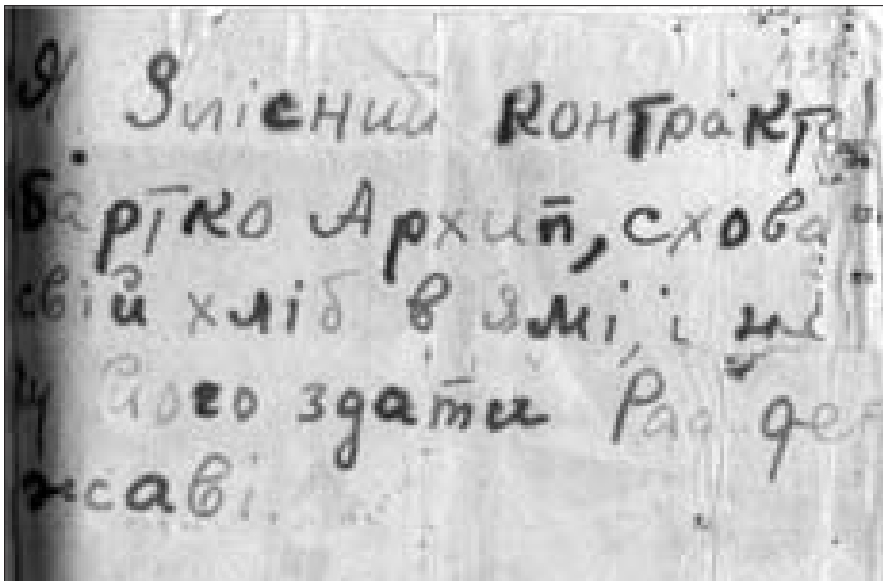 Я Злісний контракта
бартко Архип, схова
свій хліб в ямі, і не
чу його здати Рад дер
жаві.